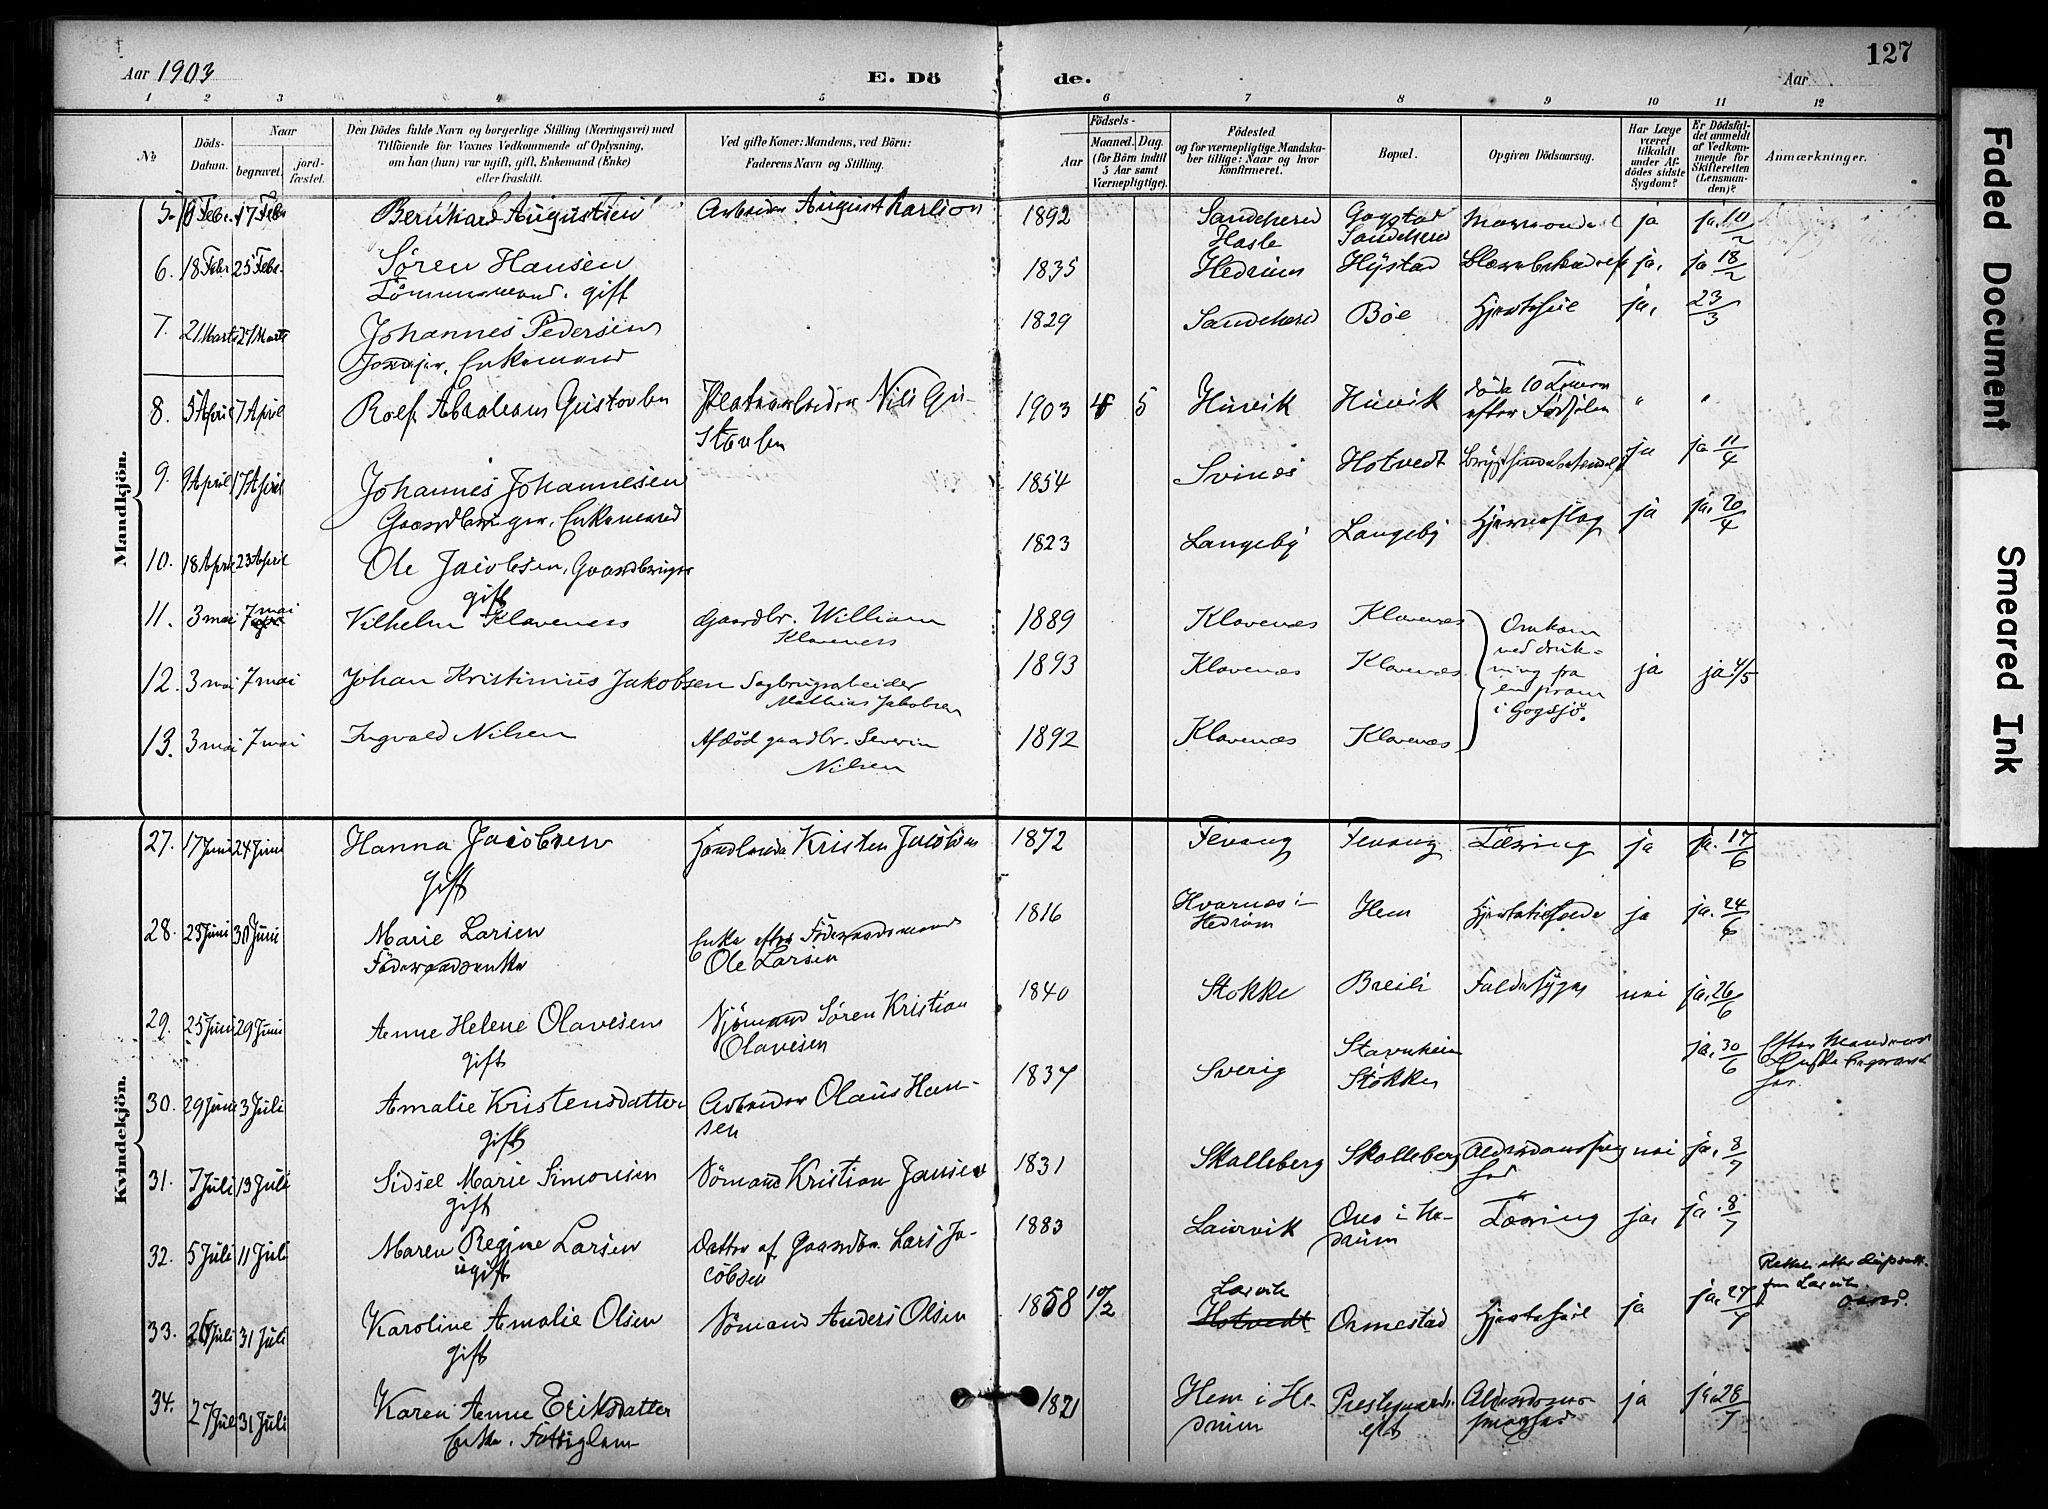 127
Aar 1903
E. Dö de.
Aar
1 2 3 4 5 6 7 8 9 10 11 12
No
Döds-Datum.
Naar
begravet.
jord-fæstet.
Den Dödes fulde Navn og borgerlige Stilling (Næringsvei) med
Tilföiende for Voxnes Vedkommende af Oplysning,
om han (hun) var ugift, gift, Enkemand (Enke)
eller fraskilt.
Ved gifte Koner: Mandens, ved Börn:
Faderens Navn og Stilling.
Födsels-
Aar
Maaned. Dag.
(for Börn indtil
5 Aar samt
Værnepligtige).
Födested
og for værnepligtige Mandska-
ber tillige: Naar og hvor
konfirmeret.
Bopæl.
Opgiven Dödsaarsag.
Har Læge
været
tilkaldt
under Af-
dödes sidste
Sygdom?
Er Dödsfal-
det anmeldt
af Vedkom-
mende for
Skifteretten
(Lensman-
den)?
Anmærkninger.
Mandkjön.
5. 10 Febr. 17 Febr Bernhard Augustsen Arbeider August Karlson 1892 Sandeherred Gogstad ja ja 10/2
Hasle Sandeherred
6. 18 Febr 25 Febr. Søren Hansen 1835 Hedrum Hystad ja, ja 18/2
Tømmermand. gift
7. 21 Marts 27 Marts Johannes Pedersen 1829 Sandeherred Bøe Hjertefeil ja, 23/3
Jordejer, Enkemand
8. 5 April 7 April Rolf Abraham Gustavsen Nils Gu- 1903 4 5 Huvik Huvik døde 10 Timer " "
stavsen efter Fødselen
9. 9 April 17 April Johannes Johannesen 1854 Svinøs Hotvedt ja ja 11/4
Gaardbruger, Enkemand
10. 18 April 23 April Ole Jacobsen, Gaardbruger 1823 Langeby Langeby Hjerneslag ja ja. 20/4
gift
11. 3 mai 7 mai Vilhelm Klaveness Gaardbr. William 1889 Klavenæs Klavenæs Omkom
Klaveness ved druk-
12. 3 mai 7 mai Johan Kristinius Jakobsen Sagbrugsarbeider 1893 Klavenæs Klavenæs ning fra ja ja 4/5
Mathias Jakobsen en pram
i Gogsjø.
13. 3 mai 7 mai Ingvald Nilsen Afdød gaardbr. Severin 1892 Klavenæs Klavenæs
Nilsen
Kvindekjön.
27. 17 Juni 24 Juni Hanna Jacobsen Kristen Jacobsen 1872 Fevang Fevang Tæring ja ja. 17/6
gift
28. 23 Juni 30 Juni Marie Larsen Enke efter Føderaadsmand 1816 Hvarnæs i Hem ja ja. 24/6
Føderaadsenke Ole Larsen Hedrum
29. 25 Juni 29 Juni Anne Helene Olavesen Sjømand Søren Kristian 1840 Stokke Breili Faldesyge nei ja. 26/6
gift Olavesen
30. 29 Juni 3 Juli Amalie Kristensdatter Arbeider Olaus Han- 1837 Sverig Stavnheim ja. 30/6 Efter Mandens
gift sen Stokke
31. 7 Juli 13 Juli Sidsel Marie Simonsen Sømand Kristian Jansen 1831 Skalleberg Skalleberg nei ja. 8/7
gift
32. 5 Juli 11 Juli Maren Regine Larsen Datter af Gaardbr. Lars Ja- 1883 Laurvik i He- Tæring ja, ja. 8/7
ugift cobsen drum
33. 26 Juli 31 Juli Karoline Amalie Olsen Sømand Anders Olsen 1858 10/2 Larvik Ormestad Hjertefeil ja ja. 27/7 Rettet efter daabsatt.
gift Hotvedt fra Larvik.
34. 27 Juli 31 Juli Karen Anne Eriksdatter 1821 Hem i He- Prestegaards- Alderdoms- ja ja 28/7
Enke. Fattiglem drum
Faded Document
Smeared Ink